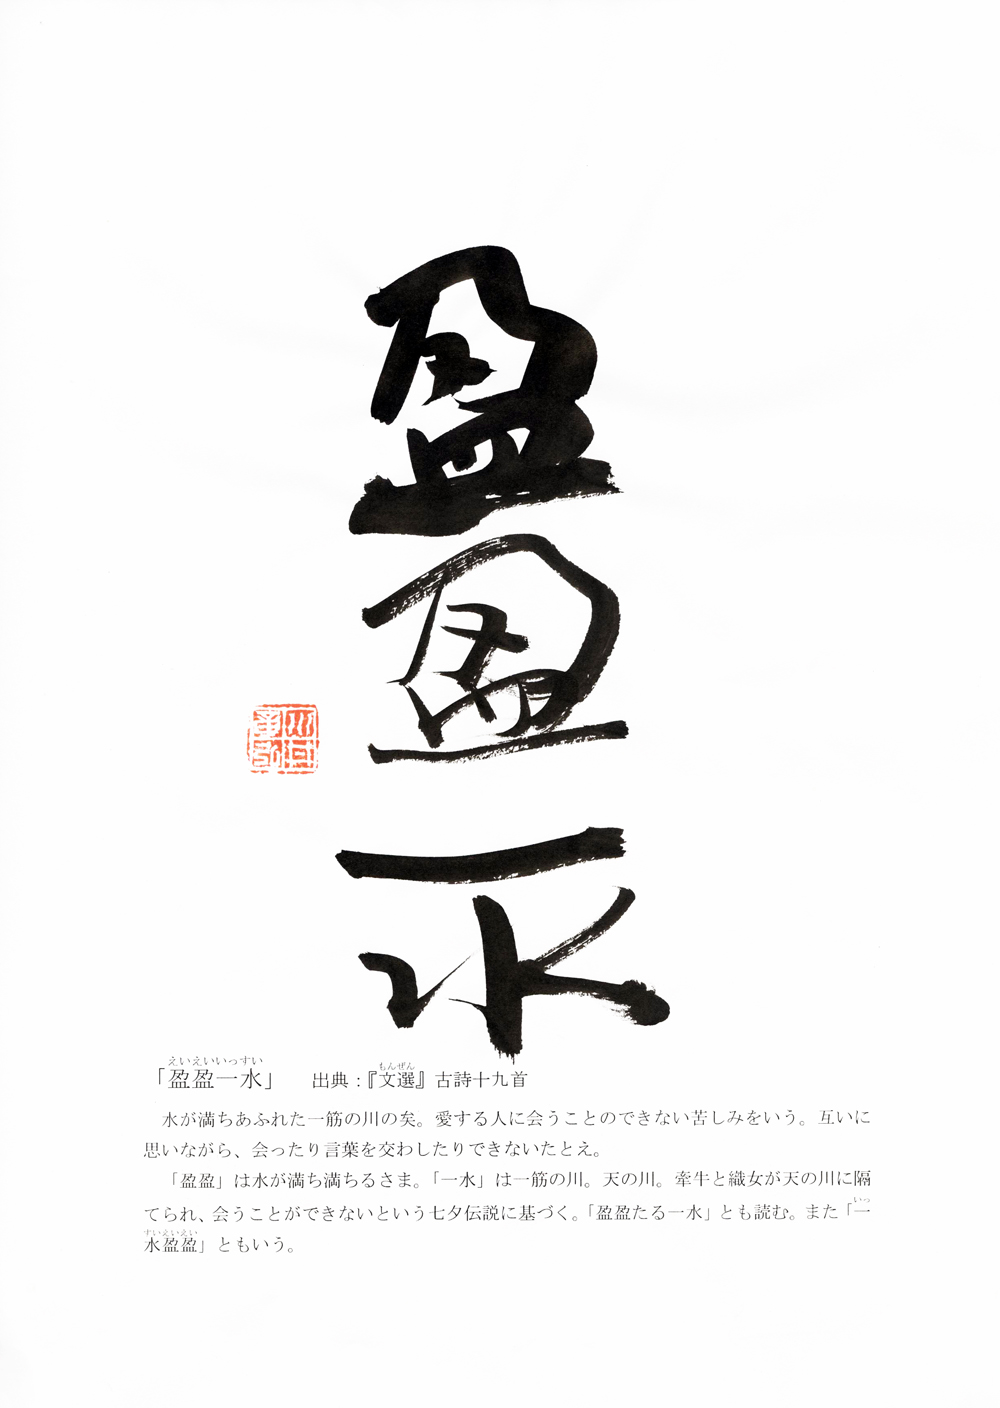 盈盈一水
えいえいいっすい
もんぜん
「盈盈一水」 出典:『文選』古詩十九首
水が満ちあふれた一筋の川の矣。愛する人に会うことのできない苦しみをいう。互いに
思いながら、会ったり言葉を交わしたりできないたとえ。
「盈盈」は水が満ち満ちるさま。「一水」は一筋の川。天の川。牽牛と織女が天の川に隔
いっ
てられ、会うことができないという七夕伝説に基づく。「盈盈たる一水」とも読む。また「一
すいえいえい
水盈盈」ともいう。